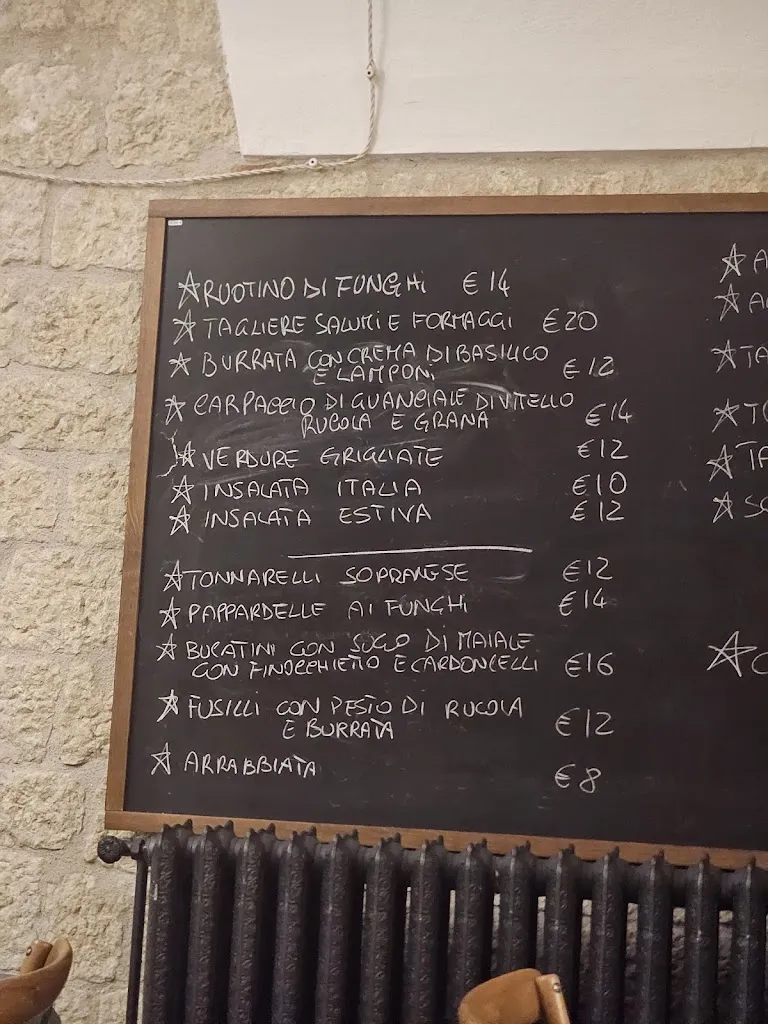 RUOTINO DI FUNGHI €14
TAGLIERE SALUMI E FORMAGGI €20
BURRATA CON CREMA DI BASILICO
E LAMPONI €12
CARPACCIO DI GUANCIALE DI VITELLO
RUCOLA E GRANA €14
VERDURE GRIGLIATE €12
INSALATA ITALIA €10
INSALATA ESTIVA €12
TONNARELLI SOPRANESE €12
PAPPARDELLE AI FUNGHI €14
BUCATINI CON SUGO DI MAIALE
CON FINOCCHIETTO E CARDONCELLI €16
FUSILLI CON PESTO DI RUCOLA
E BURRATA €12
ARRABBIATA €8